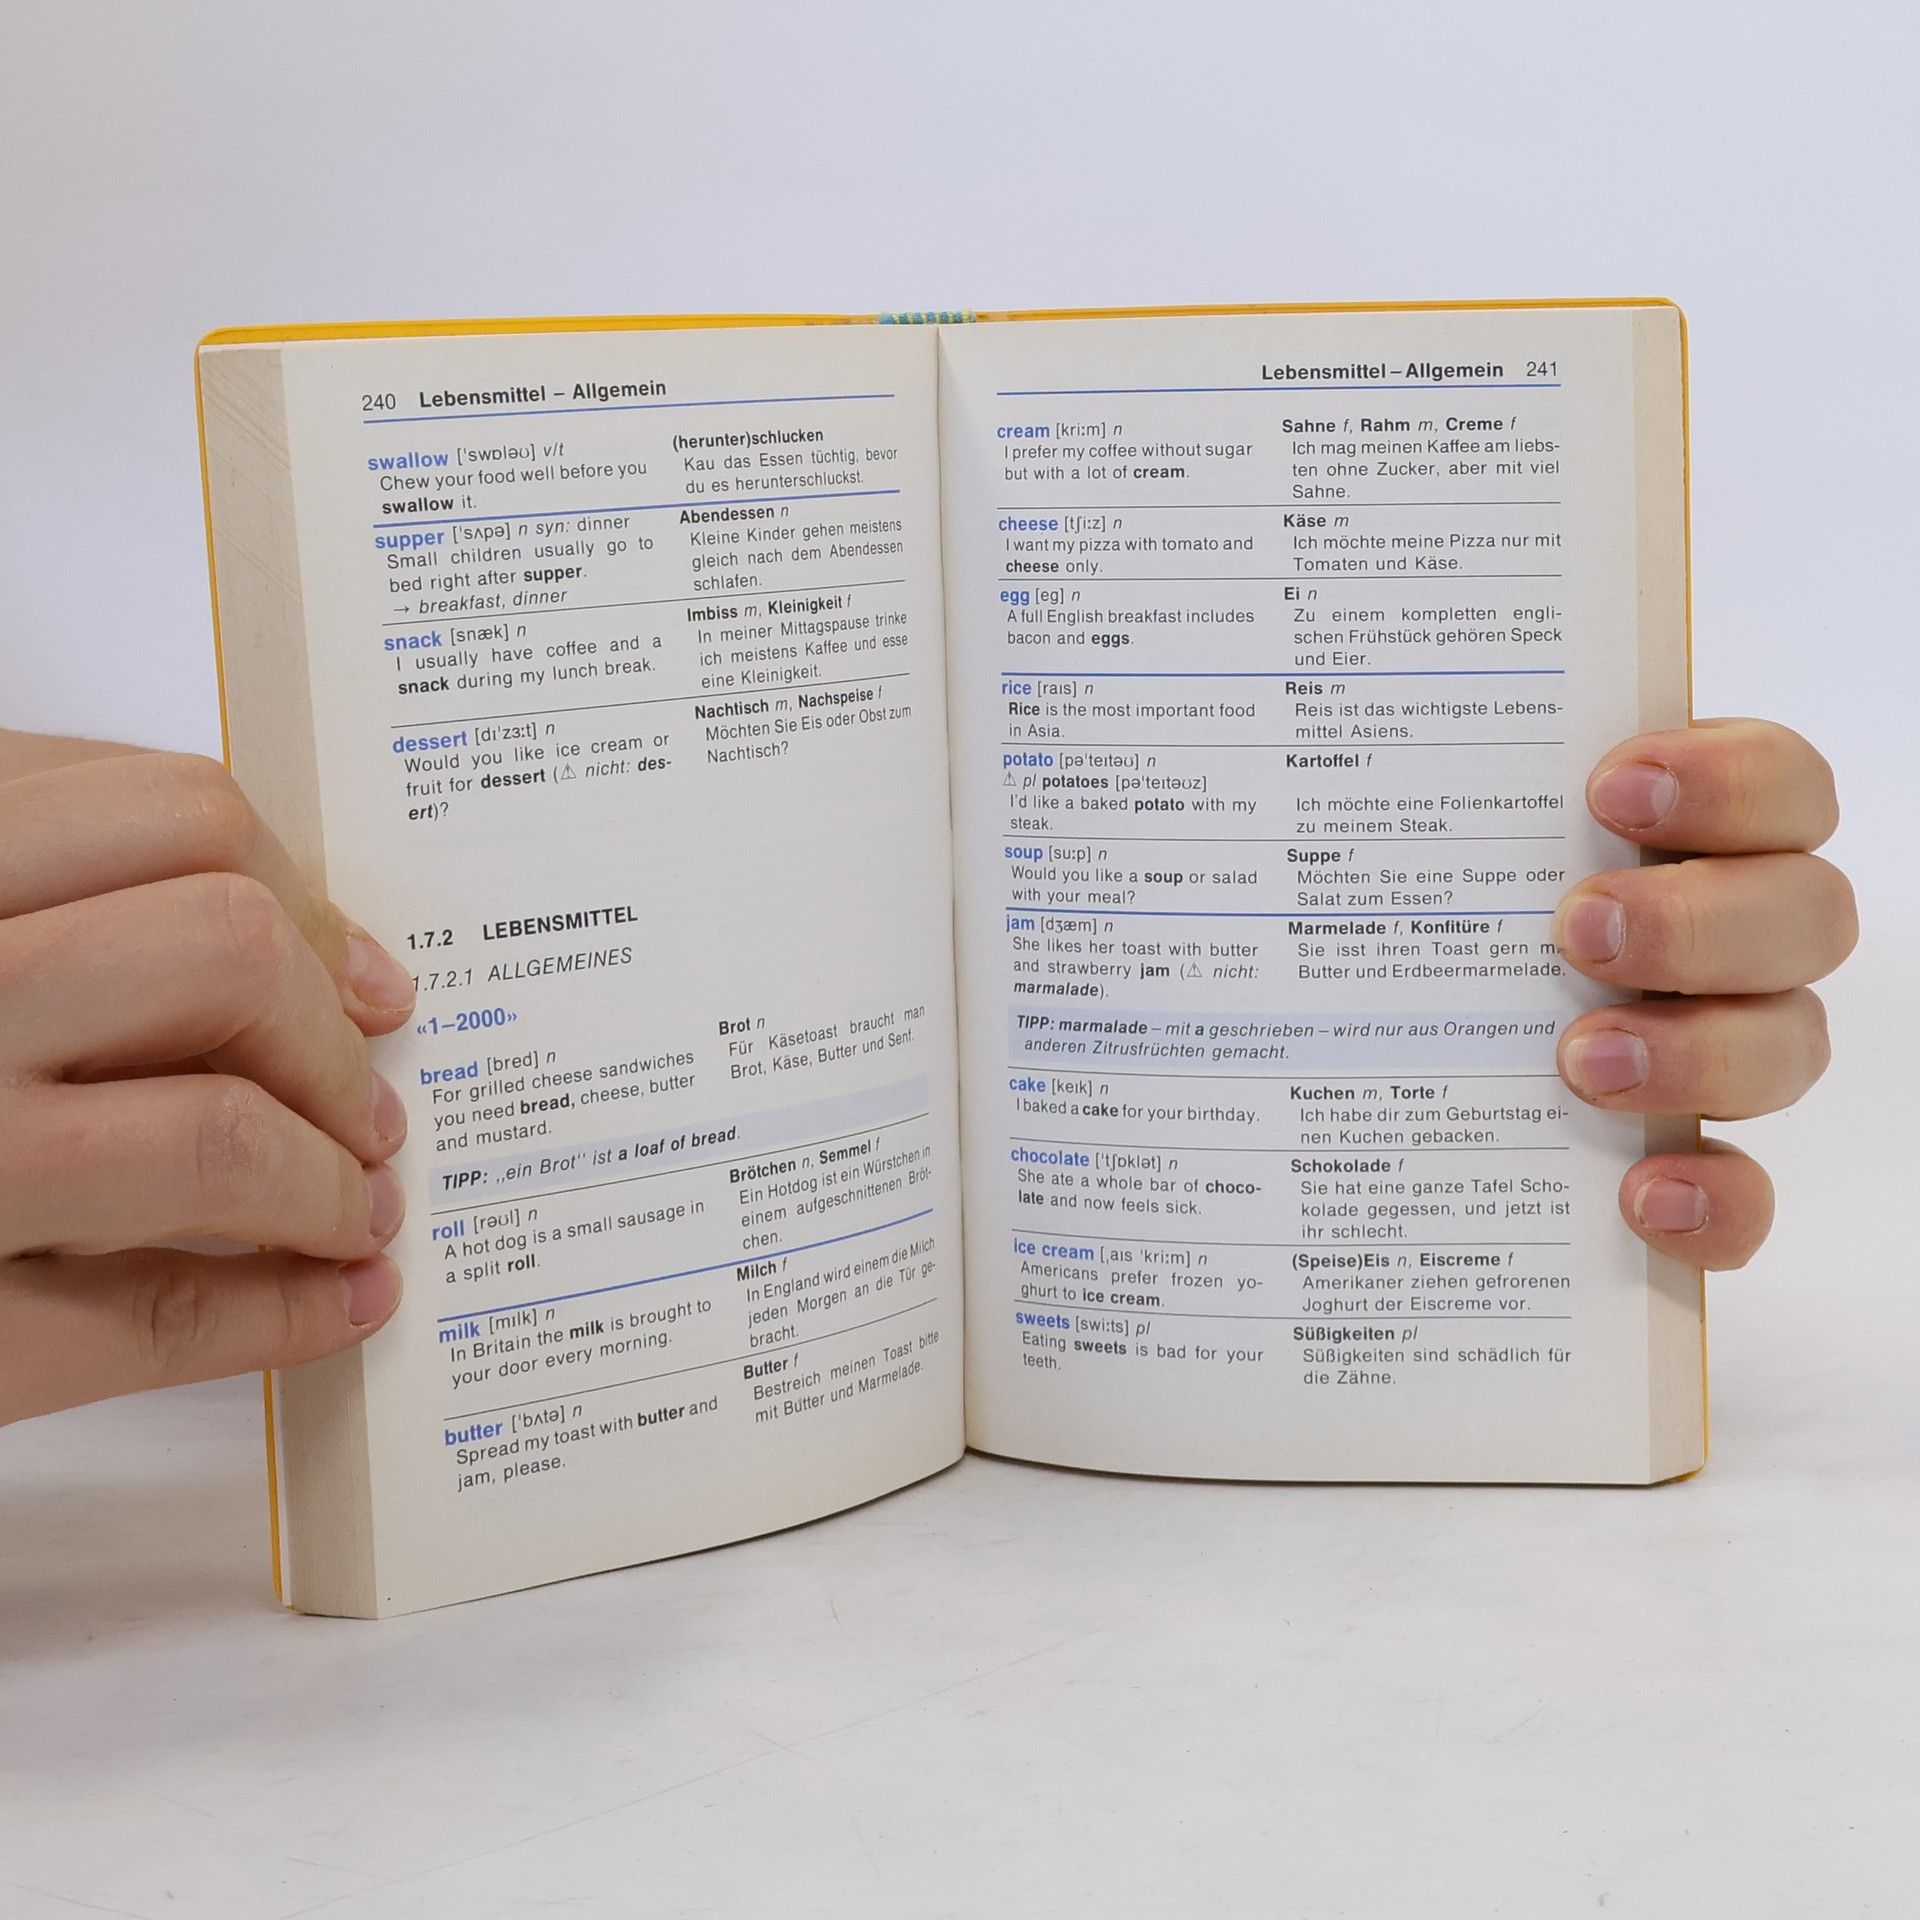 240 Lebensmittel – Allgemein
swallow [ˈswɒləʊ] v/t
Chew your food well before you
swallow it.
(herunter)schlucken
Kau das Essen tüchtig, bevor
du es herunterschluckst.
supper [ˈsʌpə] n syn: dinner
Small children usually go to
bed right after supper.
→ breakfast, dinner
Abendessen n
Kleine Kinder gehen meistens
gleich nach dem Abendessen
schlafen.
snack [snæk] n
I usually have coffee and a
snack during my lunch break.
Imbiss m, Kleinigkeit f
In meiner Mittagspause trinke
ich meistens Kaffee und esse
eine Kleinigkeit.
dessert [dɪˈzɜːt] n
Would you like ice cream or
fruit for dessert (⚠ nicht: des-
ert)?
Nachtisch m, Nachspeise f
Möchten Sie Eis oder Obst zum
Nachtisch?
1.7.2 LEBENSMITTEL
1.7.2.1 ALLGEMEINES
«1–2000»
bread [bred] n
For grilled cheese sandwiches
you need bread, cheese, butter
and mustard.
Brot n
Für Käsetoast braucht man
Brot, Käse, Butter und Senf.
TIPP: „ein Brot“ ist a loaf of bread.
roll [rəʊl] n
A hot dog is a small sausage in
a split roll.
Brötchen n, Semmel f
Ein Hotdog ist ein Würstchen in
einem aufgeschnittenen Bröt-
chen.
milk [mɪlk] n
In Britain the milk is brought to
your door every morning.
Milch f
In England wird einem die Milch
jeden Morgen an die Tür ge-
bracht.
butter [ˈbʌtə] n
Spread my toast with butter and
jam, please.
Butter f
Bestreich meinen Toast bitte
mit Butter und Marmelade.
Lebensmittel – Allgemein 241
cream [kriːm] n
I prefer my coffee without sugar
but with a lot of cream.
Sahne f, Rahm m, Creme f
Ich mag meinen Kaffee am liebs-
ten ohne Zucker, aber mit viel
Sahne.
cheese [tʃiːz] n
I want my pizza with tomato and
cheese only.
Käse m
Ich möchte meine Pizza nur mit
Tomaten und Käse.
egg [eg] n
A full English breakfast includes
bacon and eggs.
Ei n
Zu einem kompletten engli-
schen Frühstück gehören Speck
und Eier.
rice [raɪs] n
Rice is the most important food
in Asia.
Reis m
Reis ist das wichtigste Lebens-
mittel Asiens.
potato [pəˈteɪtəʊ] n
⚠ pl potatoes [pəˈteɪtəʊz]
I'd like a baked potato with my
steak.
Kartoffel f
Ich möchte eine Folienkartoffel
zu meinem Steak.
soup [suːp] n
Would you like a soup or salad
with your meal?
Suppe f
Möchten Sie eine Suppe oder
Salat zum Essen?
jam [dʒæm] n
She likes her toast with butter
and strawberry jam (⚠ nicht:
marmalade).
Marmelade f, Konfitüre f
Sie isst ihren Toast gern
Butter und Erdbeermarmelade.
TIPP: marmalade – mit a geschrieben – wird nur aus Orangen und
anderen Zitrusfrüchten gemacht.
cake [keɪk] n
I baked a cake for your birthday.
Kuchen m, Torte f
Ich habe dir zum Geburtstag ei-
nen Kuchen gebacken.
chocolate [ˈtʃɒklət] n
She ate a whole bar of choco-
late and now feels sick.
Schokolade f
Sie hat eine ganze Tafel Scho-
kolade gegessen, und jetzt ist
ihr schlecht.
ice cream [ˌaɪs ˈkriːm] n
Americans prefer frozen yo-
ghurt to ice cream.
(Speise)Eis n, Eiscreme f
Amerikaner ziehen gefrorenen
Joghurt der Eiscreme vor.
sweets [swiːts] pl
Eating sweets is bad for your
teeth.
Süßigkeiten pl
Süßigkeiten sind schädlich für
die Zähne.